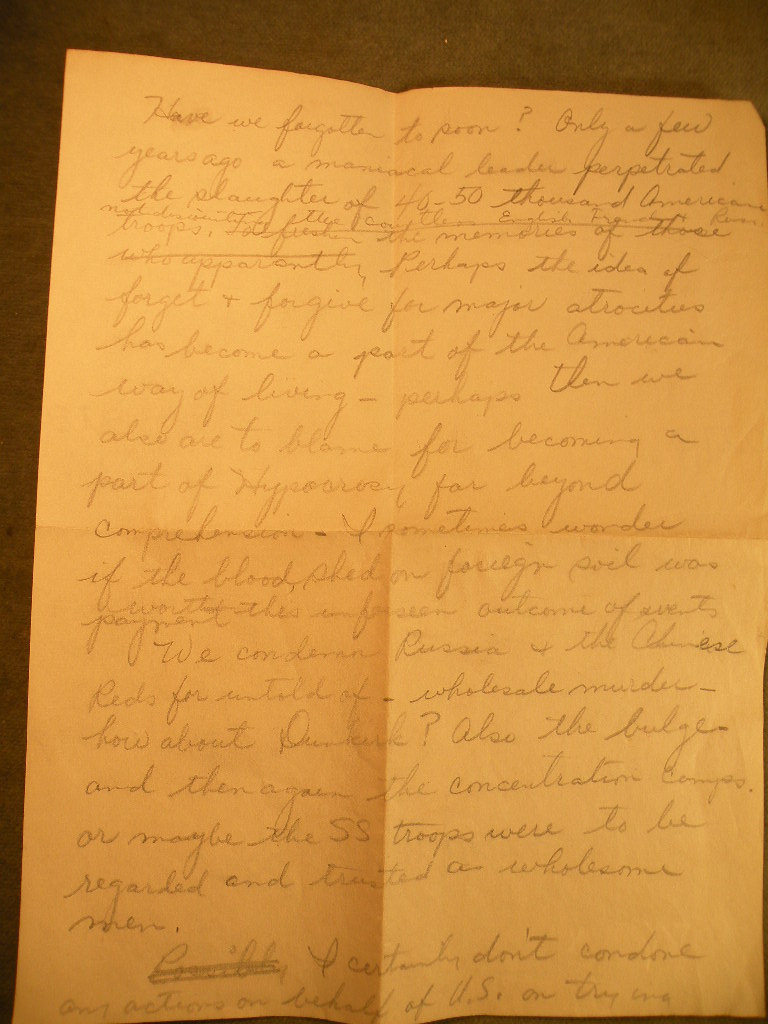 Have we forgotten to soon? Only a few
years ago a maniacal leader perpetrated
the slaughter of 40-50 thousand American
not the countless English, French &
troops. To refreshen the memories of those
who apparantly, Perhaps the idea of
forget & forgive for major atrocities
has become a part of the American
way of living - perhaps then we
also are to blame for becoming a
part of Hypocrosy far beyond
comprehension - I sometimes wonder
if the blood shed on foreign soil was
worth this unforseen outcome of events
payment
We condemn Russia & the Chinese
Reds for untold of - wholesale murder -
how about Dunkirk? Also the bulge -
and then again the concentration camps.
or maybe the SS troops were to be
regarded and trusted as wholesome
men.
Possibly I certainly don't condone
any actions on behalf of U.S. on trying